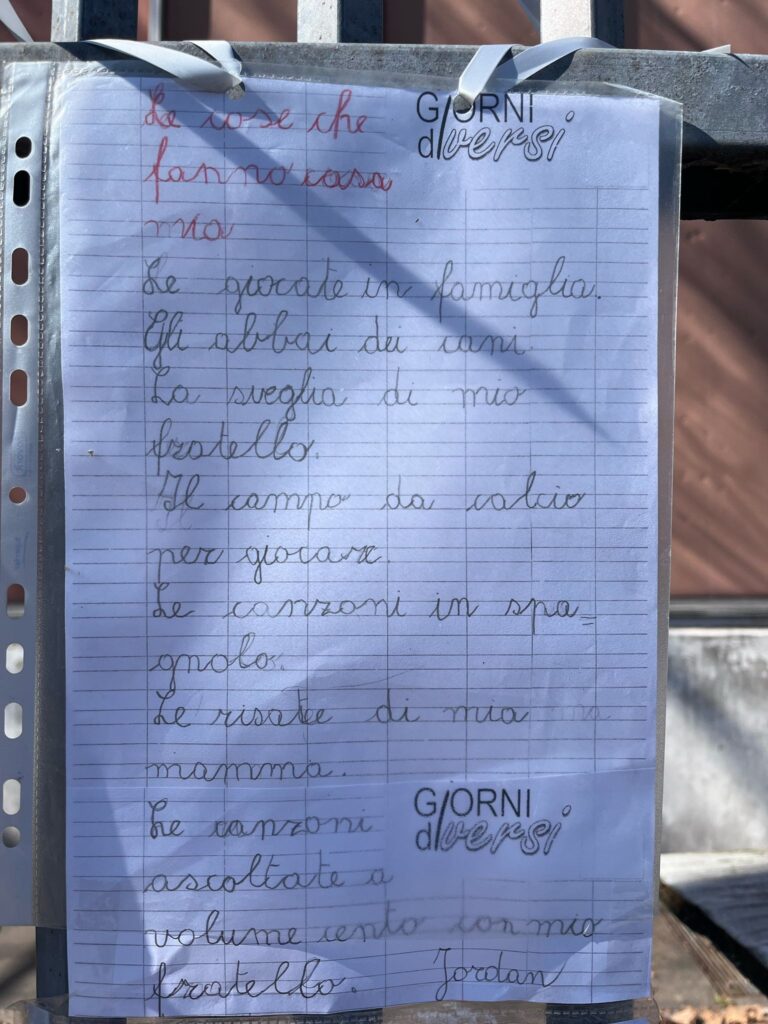 Le cose che
fanno casa
mia
GIORNI
diversi
Le giocate in famiglia.
Gli abbai dei cani.
La sveglia di mio
fratello.
Il campo da calcio
per giocare.
Le canzoni in spa=
gnolo.
Le risate di mia
mamma.
GIORNI
diversi
Le canzoni
ascoltate a
volume cento con mio
fratello. Jordan